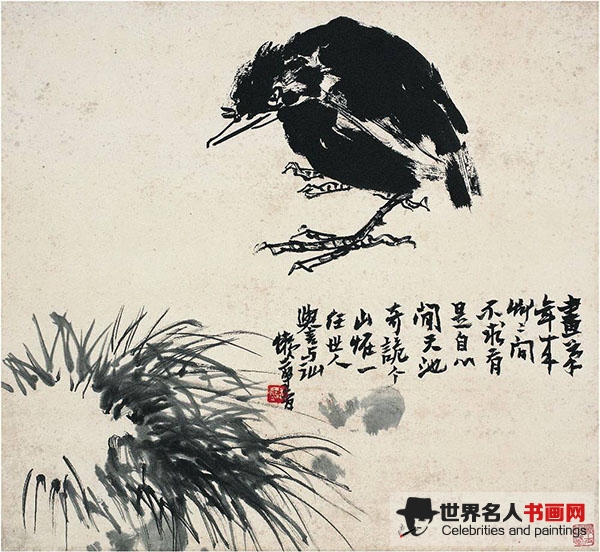 畫筆
年来
間
不求有
是自心
閒天池
奇詭个
山怪一
任世人
譽与訕
懶尊者
世界名人书画网
Celebrities and paintings